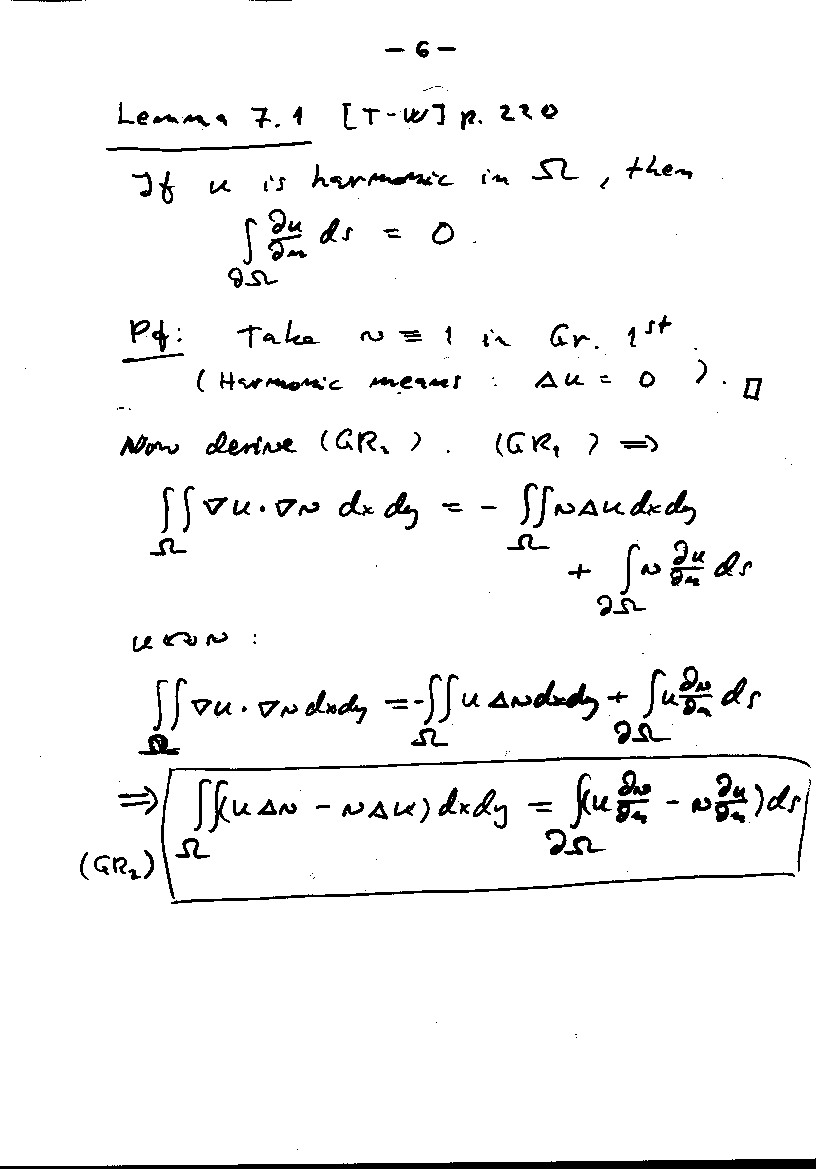 - 6 -
Lemma 7.1 [T-W] p. 220
If u is harmonic in Ω, then
∫_{∂Ω} ∂u/∂n ds = 0.
Pf: Take v ≡ 1 in Gr. 1st.
(Harmonic means: Δu = 0). □
Now derive (GR₂). (GR₁) ⇒
∬_Ω ∇u·∇v dxdy = - ∬_Ω vΔu dxdy
+ ∫_{∂Ω} v ∂u/∂n ds
u ↔ v:
∬_Ω ∇u·∇v dxdy = -∬_Ω uΔv dxdy + ∫_{∂Ω} u ∂v/∂n ds
⇒ ∬_Ω (uΔv - vΔu) dxdy = ∫_{∂Ω} (u ∂v/∂n - v ∂u/∂n) ds
(GR₂)